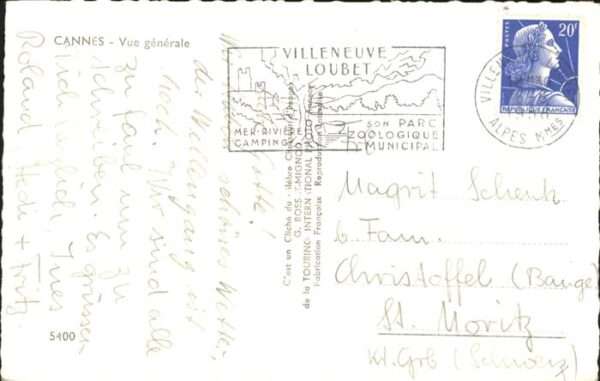 CANNES - Vue générale
VILLENEUVE
LOUBET
MER-RIVIÈRE
CAMPING
SON PARC
ZOOLOGIQUE
MUNICIPAL
POSTES
20F
RÉPUBLIQUE FRANÇAISE
VILLEN
ALPES Mmes
C'est un Cliché du
G. BOSSEMIGNOD
de la TOURING INTERNATIONAL PHOTO
Fabrication Française Reproduction
schönes Wetter,
der Wellengang ist
hoch. Wir sind alle
zu faul um zu
schreiben. Es grüssen
Dich herzlich Ines
Roland Hedi + Fritz.
Magrit Schenk
b. Fam.
Christoffel (Bauge
St. Moritz
Kt. Grb (Schweiz)
5400